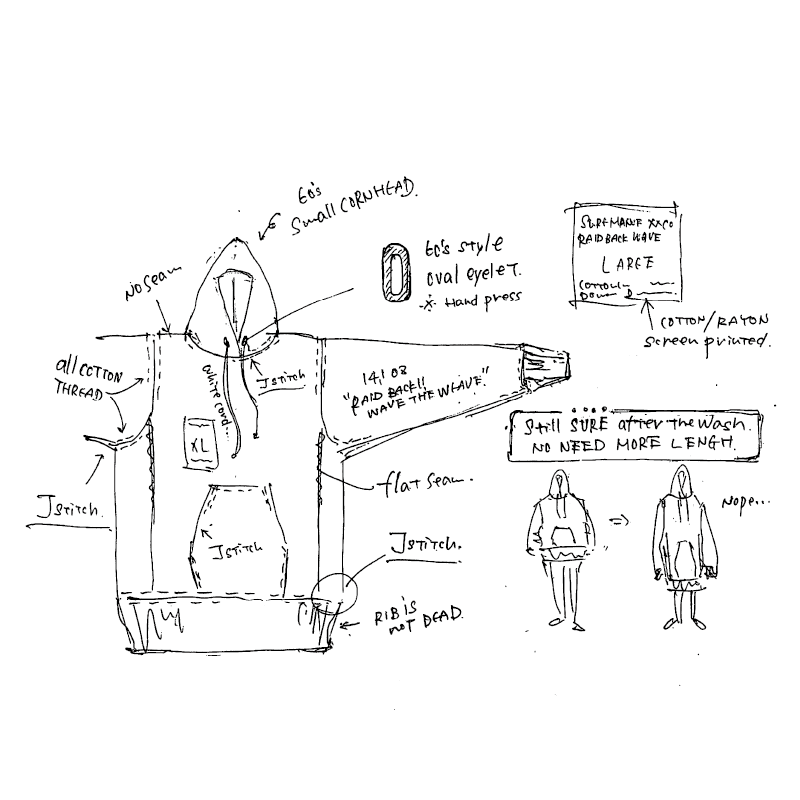 60's
Small CORNHEAD.
NO Seam
60's style
oval eyelet.
Hand press
SUREMANNE XX CO
RAID BACK WAVE
LARGE
COTTON
DOWN
COTTON/RAYON
screen printed.
all COTTON
THREAD
White cord...
J STITCH
14,1 oz
"RAID BACK!!
WAVE THE WEAVE."
XL
Still SURE after the Wash.
NO NEED MORE LENGH.
J STITCH.
flat seam.
Nope...
J STITCH
J STITCH.
RIB IS
NOT DEAD.